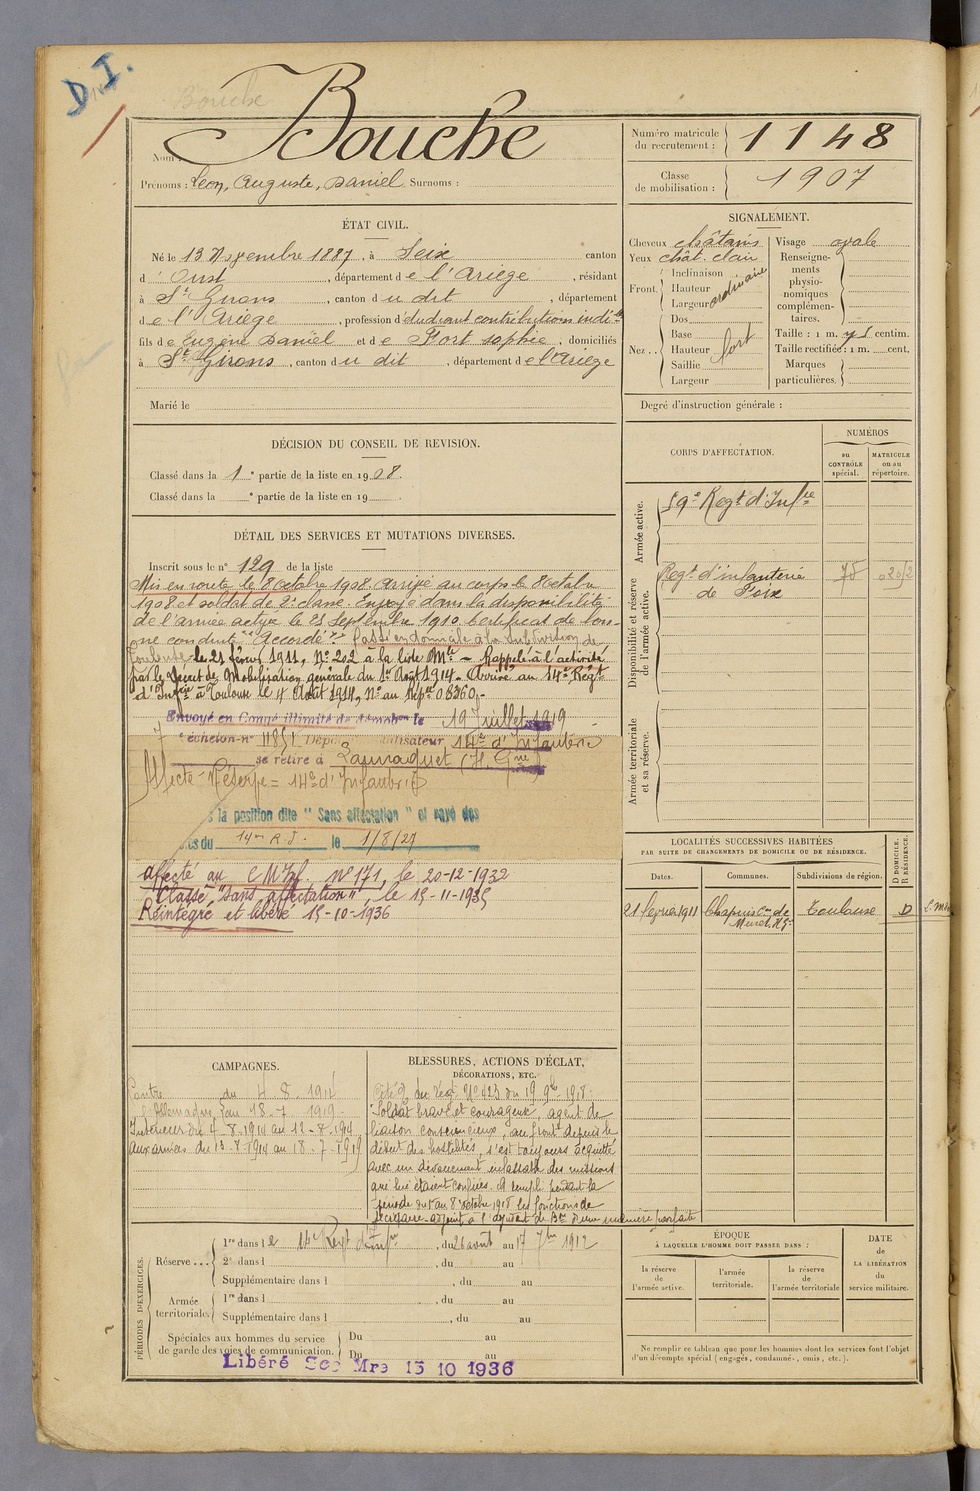 D. I.
Bouche
Nom :
Bouche
Prénoms : Léon, Auguste, Daniel Surnoms :
Numéro matricule du recrutement : 1148
Classe de mobilisation : 1907
ÉTAT CIVIL.
Né le 13 9embre 1887, à Seix canton
d' Oust, département de l'Ariège, résidant
à St Girons, canton du dit, département
de l'Ariège, profession d'étudiant contributions indies
fils de Eugène Daniel et de Fort Sophie, domiciliés
à St Girons, canton du dit, département de l'Ariège
Marié le
SIGNALEMENT.
Cheveux châtains
Yeux chât. clair
Front. Inclinaison
Hauteur
Largeur
ordinaire
Nez .. Dos
Base
Hauteur
Saillie
Largeur
fort
Visage ovale
Renseigne-
ments
physio-
nomiques
complémen-
taires.
Taille : 1 m. 75 centim.
Taille rectifiée : 1 m. cent.
Marques
particulières.
Degré d'instruction générale :
DÉCISION DU CONSEIL DE REVISION.
Classé dans la 1e partie de la liste en 1908.
Classé dans la e partie de la liste en 19
DÉTAIL DES SERVICES ET MUTATIONS DIVERSES.
Inscrit sous le n° 129 de la liste
Mis en route le 8 octobre 1908. Arrivé au corps le 8 octobre
1908 et soldat de 2e classe. Envoyé dans la disponibilité
de l'armée active le 25 Septembre 1910. Certificat de bon-
ne conduite "Accordé". Passé en domicile à la subdivision de
Toulouse le 21 février 1911, N° 202 à la liste Mle - Rappelé à l'activité
par le Décret de Mobilisation générale du 1er Août 1914. Arrivé au 14e Régt
d'Infie à Toulouse le 4 Août 1914, N° au Répre 08360.-
Envoyé en Congé illimité de démobon le 19 Juillet 1919
7e échelon n° 11851 Dépôt démobilisateur 14e d'Infanterie
se retire à Launaguet (Hte Gne)
Affecté Réserve = 14e d'Infanterie
la position dite "Sans affectation" et rayé des
les du 14me R.I. le 1/8/27
affecté au C M Inf. N° 171, le 20-12-1932
Classé "sans affectation", le 15-11-1935
Réintégré et libéré 15-10-1936
CORPS D'AFFECTATION.
NUMÉROS
au CONTRÔLE spécial.
MATRICULE ou au répertoire.
Armée active.
59e Regt d'Infie
Disponibilité et réserve de l'armée active.
Regt d'infanterie
de Foix
Armée territoriale et sa réserve.
LOCALITÉS SUCCESSIVES HABITÉES
PAR SUITE DE CHANGEMENTS DE DOMICILE OU DE RÉSIDENCE.
Dates.
Communes.
Subdivisions de région.
D DOMICILE. R RÉSIDENCE.
21 février 1911
Muret. H.G.
Toulouse
D
CAMPAGNES.
Contre
l'Allemagne
du 4-8-1914
au 18-7-1919-
Intérieur du 4-8-1914 au 12-8-1914
aux armées du 13-8-1914 au 18-7-1919
BLESSURES, ACTIONS D'ÉCLAT,
DÉCORATIONS, ETC.
Cité O. du Régt N° 423 du 19 9bre 1918:
"Soldat brave et courageux, agent de
liaison consciencieux, au front depuis le
début des hostilités, s'est toujours acquitté
avec un dévouement inlassable des missions
qui lui étaient confiées. A rempli pendant la
période du 1 au 8 octobre 1918 les fonctions de
secrétaire-adjoint à l'adjudant de Bon d'une manière parfaite
PÉRIODES D'EXERCICES.
Réserve ... 1re dans le 14e Regt d'Infie, du 26 août au 17 7bre 1912
2e dans l , du au
Supplémentaire dans l , du au
Armée territoriale. 1re dans l , du au
Supplémentaire dans l , du au
Spéciales aux hommes du service
de garde des voies de communication.
Du au
Du au
Libéré Sce Mre 15 10 1936
ÉPOQUE
À LAQUELLE L'HOMME DOIT PASSER DANS :
la réserve de l'armée active.
l'armée territoriale.
la réserve de l'armée territoriale
DATE
de
LA LIBÉRATION
du
service militaire.
Ne remplir ce tableau que pour les hommes dont les services font l'objet
d'un décompte spécial (engagés, condamnés, omis, etc.).